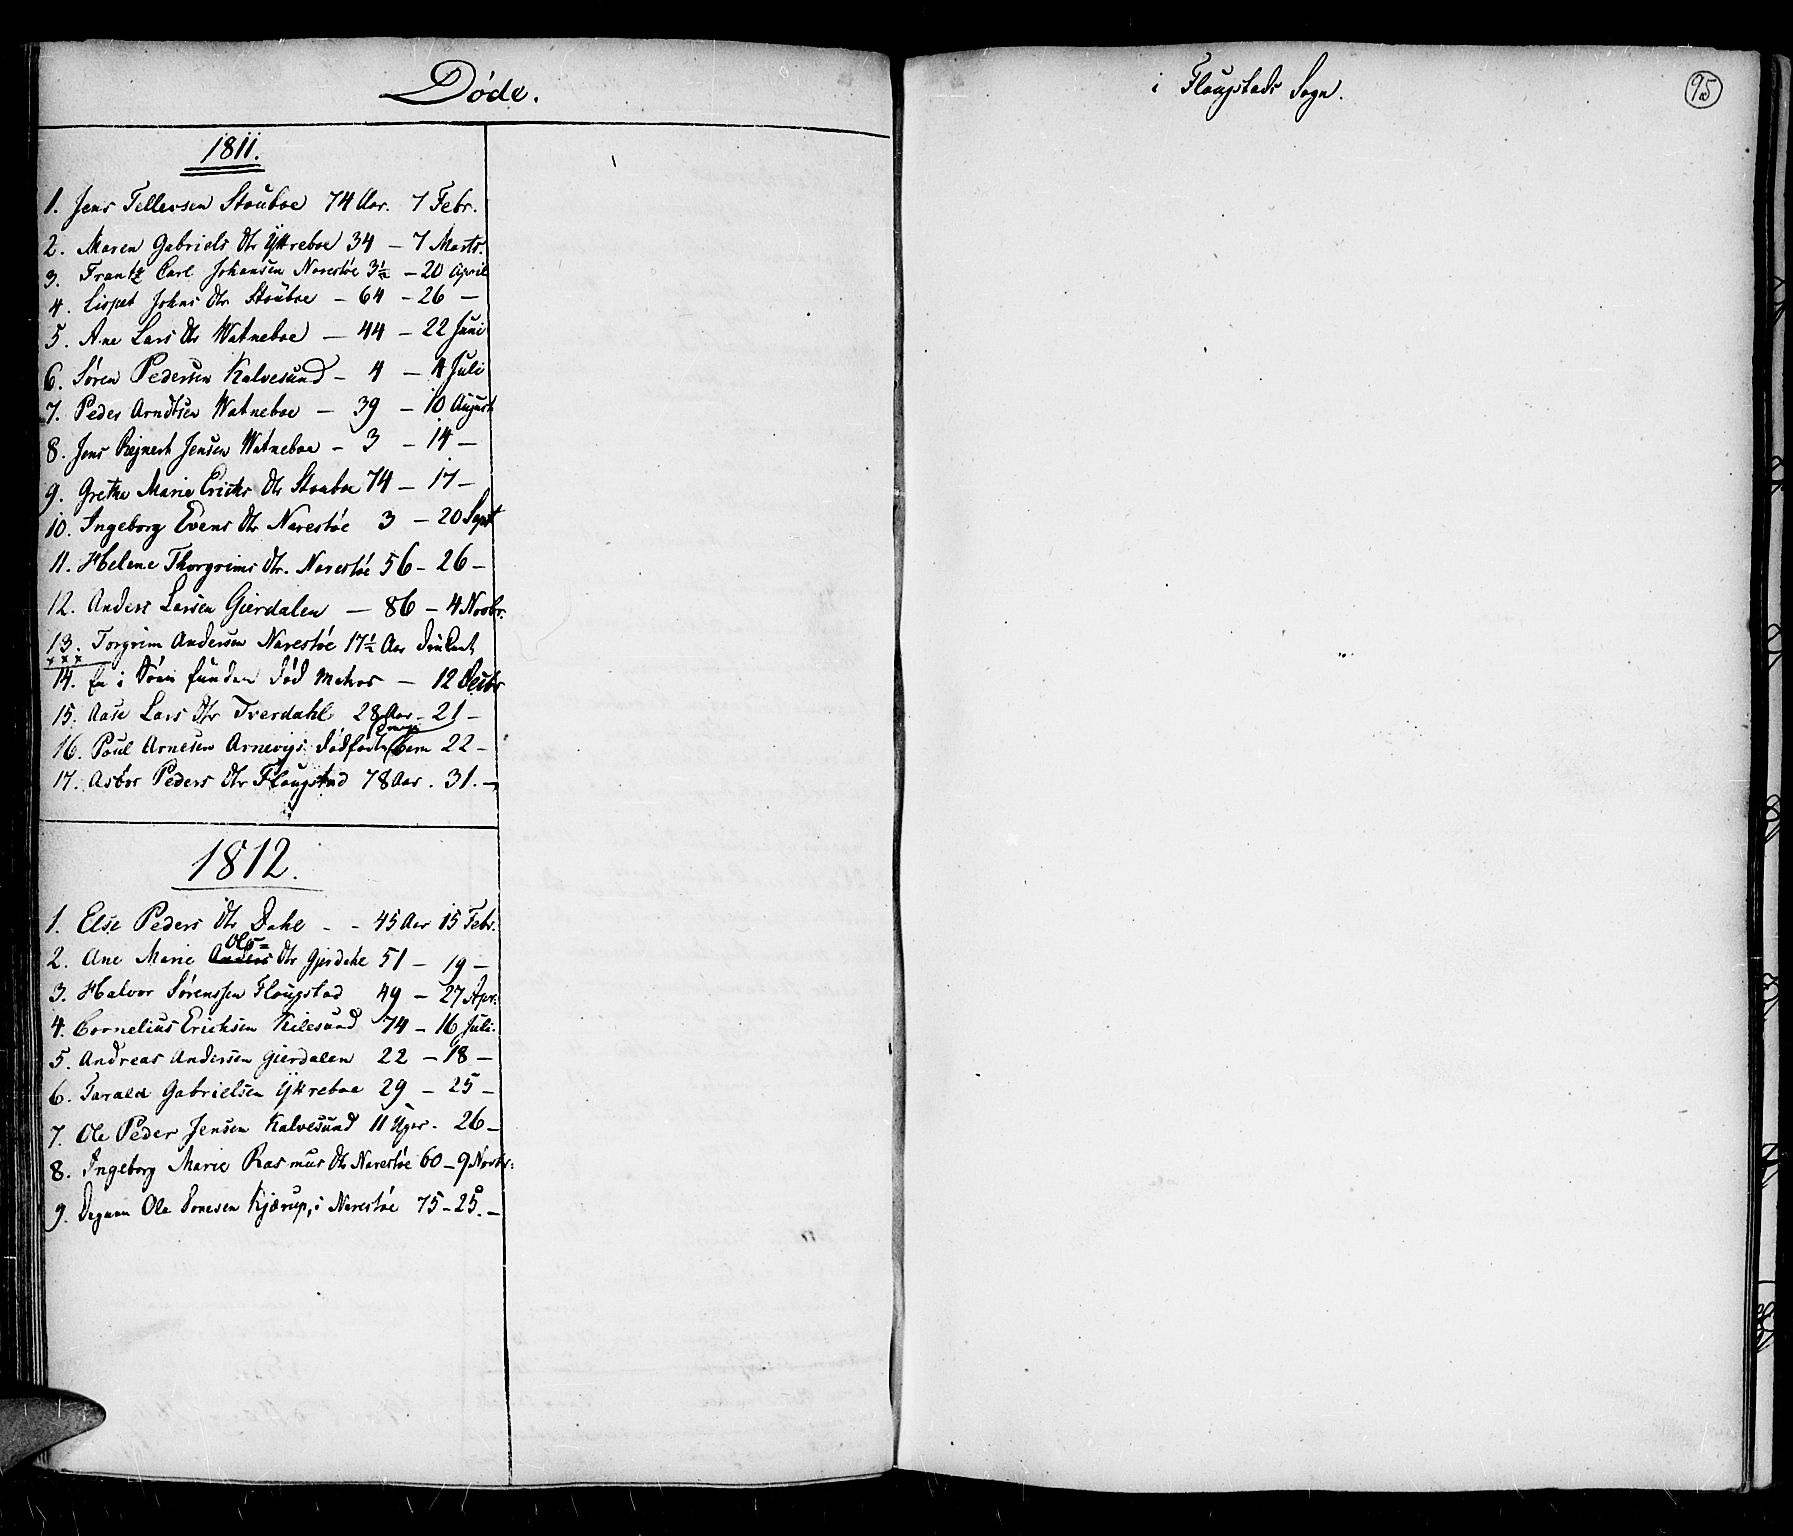 Døde.
1811.
1. Jens Tellevsen Stouboe 74 Aar. 7 Febr.
2. Maren Gabriels Dtr Yttreboe 34 — 7 Marts.
3. Frantz Carl Johansen Narestøe 3½ — 20 April
4. Lispet Johns Dtr Stouboe — 64 — 26 —
5. Ane Lars Dtr Watneboe — 44 — 22 Juni
6. Søren Pedersen Kalvesund — 4 — 4 Juli
7. Peder Arndtsen Watneboe — 39 — 10 August
8. Jens Rejnert Jensen Watneboe — 3 — 14 —
9. Grethe Marie Erichs Dtr Stouboe 74 — 17 —
10. Ingeborg Evens Dtr Narestøe 3 — 20 Sept
11. Helene Thorgrims Dtr. Narestøe 56 — 26 —
12. Anders Larsen Gierdalen — 86 — 4 Novbr.
13. Torgrim Andersen Narestøe 17½ Aar druknt
x x x
14. En i Søen funden død Matros — 12 Decbr
15. Aase Lars Dtr Tverdahl 28 Aar — 21 —
16. Poul Arnesen Arnevigs dødfødte Barn 22 —
17. Asbor Peders Dtr Flougstad 78 Aar. 31. —
1812.
1. Else Peders Dtr Dahl - - 45 Aar 15 Febr.
Ols=
2. Ane Marie Anders Dtr Gjerdahl 51 — 19 —
3. Halvor Sørenssen Flougstad 49 — 27 Apr.
4. Cornelius Erichsen Kilesund 74 — 16 Juli.
5. Andreas Andersen Gierdalen 22 — 18 —
6. Tarald Gabrielsen Yttreboe 29 — 25 —
7. Ole Peder Jensen Kalvesund 11 Uger. 26 —
8. Ingeborg Marie Rasmus Dtr Narestøe 60 — 9 Novbr:
9. Degnen Ole Kjærup, i Narestøe 75 — 25. —
i Flougstads Sogn.
95